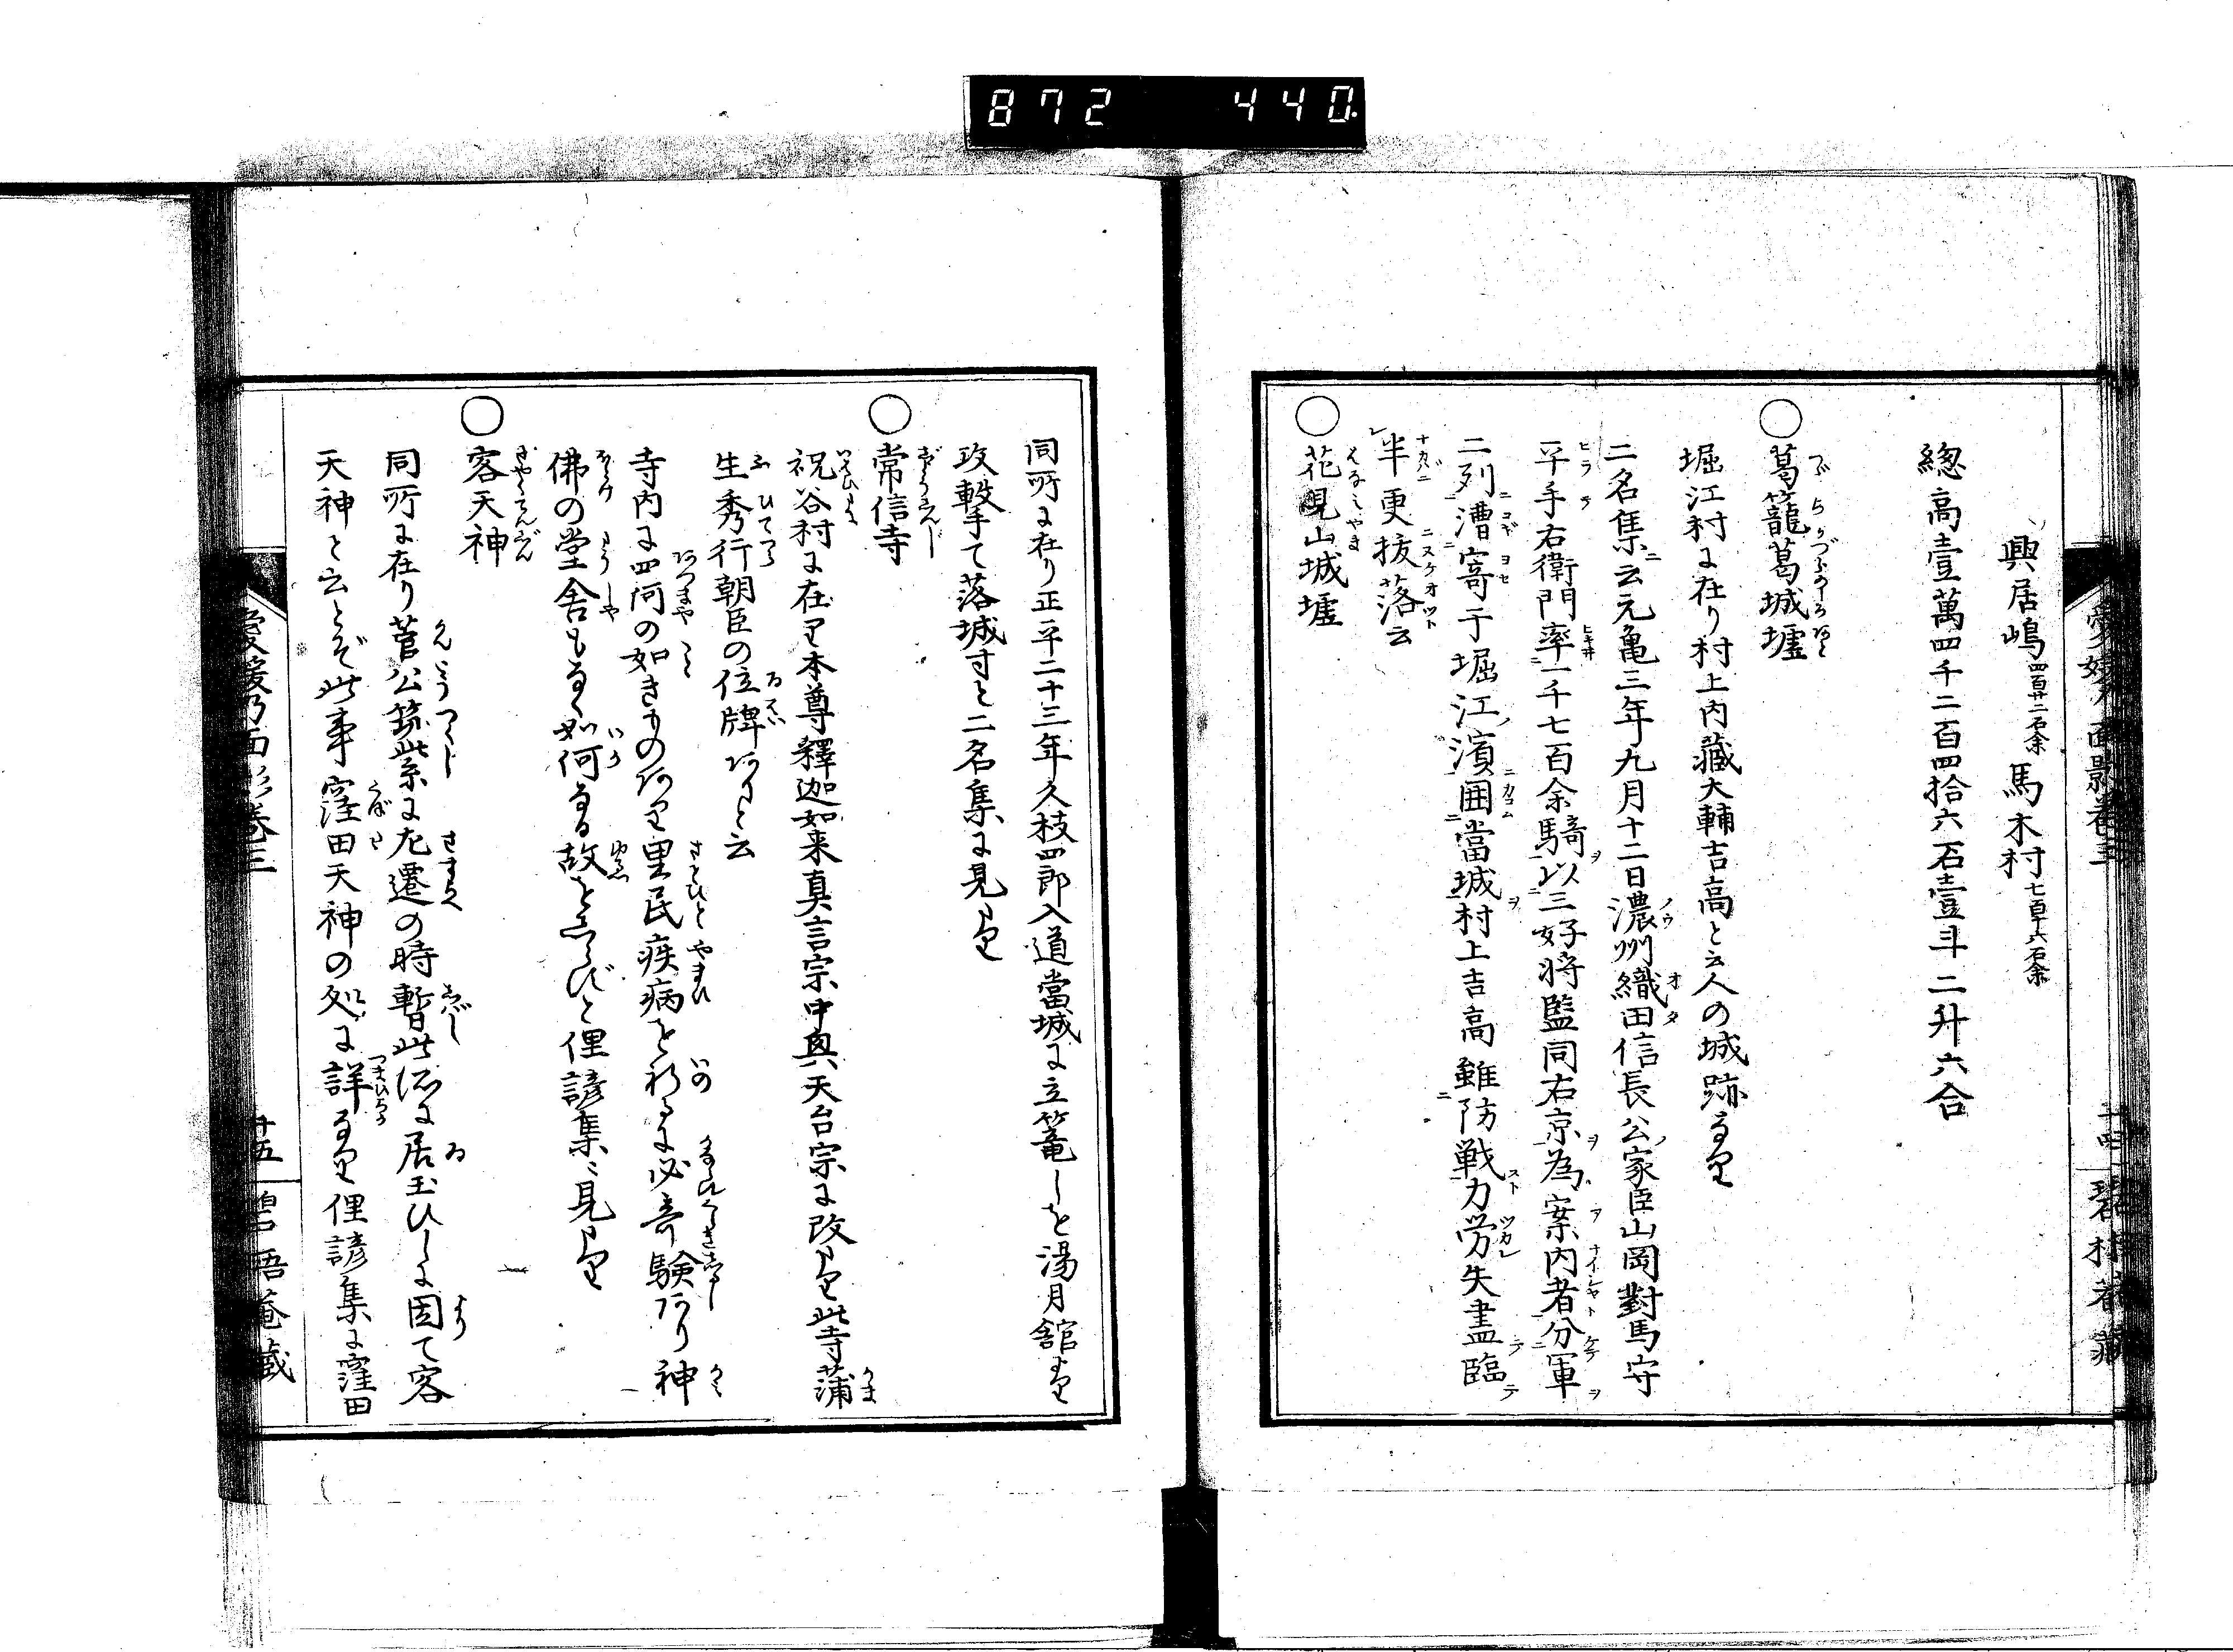 872 440
愛媛乃面影巻三
十四
碧梧菴藏
興居嶋 四百廿二石余 馬木村 七百十六石余
總高壹萬四千二百四拾六石壹斗二升六合
○葛籠葛城墟
堀江村に在り村上内藏大輔吉高と云人の城跡なり
二名集云元亀三年九月十二日濃州織田信長公家臣山岡對馬守
平手右衛門率一千七百余騎以三好将監同右京為案内者分軍
二列漕寄于堀江濱囲當城村上吉高雖防戦力労矢盡臨
半更抜落云
○花見山城墟
同所に在り正平二十三年久枝四郎入道當城に立篭しを湯月舘より
攻撃て落城すと二名集に見えたり
○常信寺
祝谷村に在り本尊釋迦如来真言宗中奥天台宗に改めたり此寺蒲
生秀行朝臣の位牌ありと云
寺内に四阿の如きものあり里民疾病を祈るに必奇験あり神
佛の堂舎もなく如何なる故をしらずと俚諺集に見えたり
○客天神
同所に在り菅公筑紫に左遷の時暫此所に居玉ひしに因て客
天神と云とぞ此事窪田天神の処に詳なり俚諺集に窪田
愛媛乃面影巻三
十五
碧梧菴藏